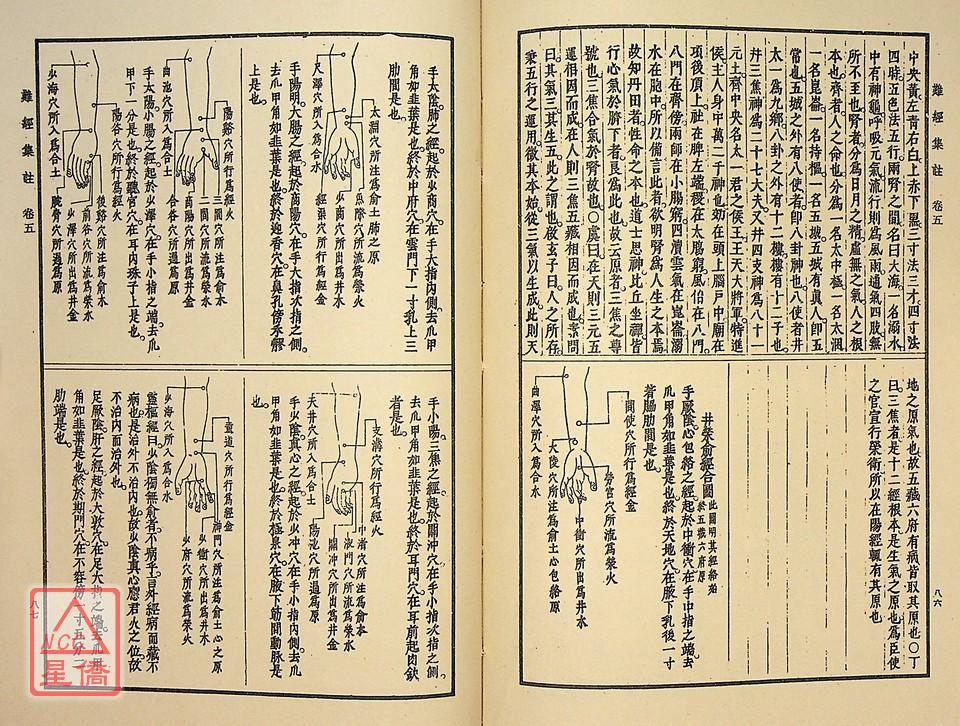 難經集註 卷五
中央黃左青右白上赤下黑三寸法三才四寸法
四時五色法五行兩腎之間名曰大海一名溺水
中有神龜呼吸元氣流行則爲風雨通氣四肢無
所不至也腎者分爲日月之精虛無之氣人之根
本也齊者人之命也分爲一名太中極一名太淵
一名崑崙一名持樞一名五城五城有眞人卽五
常也五城之外有八使者卽八卦神也八使者井
太一爲九鄉八卦之外有十二樓樓有十二子也
井三焦神爲二十七大夫又井四支神爲八十一
元士齊中央名太一君之侯王王天大將軍特進
侯主人身中萬二千神也
項後頂上社在脾左端稷在太腸窮風伯在八門
八門在齊傍雨師在小腸窮四瀆雲氣在崑崙溺
水在胞中所以備言此者欲明腎爲人生之本焉
故知丹田者性命之本也道士思神比丘坐禪皆
行心氣於臍下者良爲此也故云原者三焦之尊
號也三焦合氣於腎故也〇虞曰在天則三元五
運相因而成在人則三焦五藏相因而成也素問
曰其氣三其生五此之謂也啟玄子曰人之所存
秉五行之運用徵其本始從三氣以生成此則天
地之原氣也故五藏六府有病皆取其原也〇丁
曰三焦者是十二經根本是生氣之原也爲臣使
之官宣行榮衛所以在陽經輒有其原也
井榮俞經合圖
此圖明其經絡始
終五藏六府原
手厥陰心包絡之經起於中衝穴在手中指之端去
爪甲角如韭葉是也終於天地穴在腋下乳後一寸
著脇肋間是也
間使穴所行爲經金
勞宮穴所流爲榮火
中衝穴所出爲井木
大陵穴所注爲俞土心包絡原
曲澤穴所入爲合水
八六
手太陰肺之經起於少商穴在手大指內側去爪甲
角如韭葉是也終於中府穴在雲門下一寸乳上三
肋間是也
太淵穴所注爲俞土肺之原
魚際穴所流爲榮火
少商穴所出爲井木
經渠穴所行爲經金
尺澤穴所入爲合水
手陽明大腸之經起於商陽穴在手大指次指之側
去爪甲角如韭葉是也終於迎香穴在鼻孔傍禾髎
上是也
陽谿穴所行爲經火
三間穴所注爲俞木
二間穴所流爲榮水
商陽穴所出爲井金
合谷穴所過爲原
曲池穴所入爲合土
手太陽小腸之經起於少澤穴在手小指之端去爪
甲下一分是也終於聽宮穴在耳內珠子上是也
陽谷穴所行爲經火
後谿穴所注爲俞木
前谷穴所流爲榮水
少澤穴所出爲井金
腕骨穴所過爲原
少海穴所入爲合土
手小陽三焦之經起於關沖穴在手小指次指之側
去爪甲角如韭葉是也終於耳門穴在耳前起肉欽
者是也
支溝穴所行爲經火
中渚穴所注爲俞木
液門穴所流爲榮水
關沖穴所出爲井金
陽池穴所過爲原
天井穴所入爲合土
手少陰眞心之經起於少沖穴在手小指內側去爪
甲角如韭葉是也終於極泉穴在腋下筋間動脉是
也
靈道穴所行爲經金
神門穴所注爲俞土心之原
少衝穴所出爲井木
少府穴所流爲榮火
少海穴所入爲合水
靈樞經曰少陰獨無俞者不病乎言外經病而藏不
病也是治外不治內也故少陰眞心應君火之位故
不治內而治外也
足厥陰肝之經起於大敦穴在足大指之端去爪甲
角如韭葉是也終於期門穴在不容傍一寸五分二
肋端是也
難經集註 卷五
八七
NCC
星僑